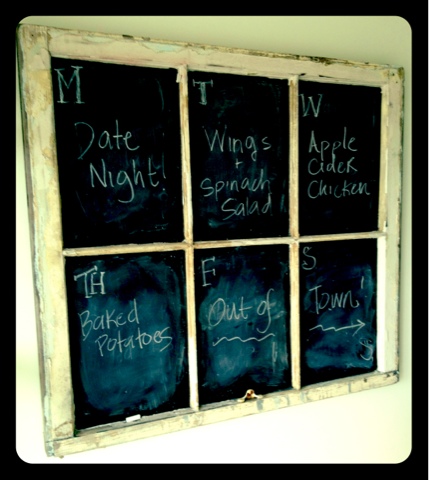 M
Date
Night!
T
Wings
+
Spinach
Salad
W
Apple
Cider
Chicken
TH
Baked
Potatoes
F
Out of
S
Town!
S